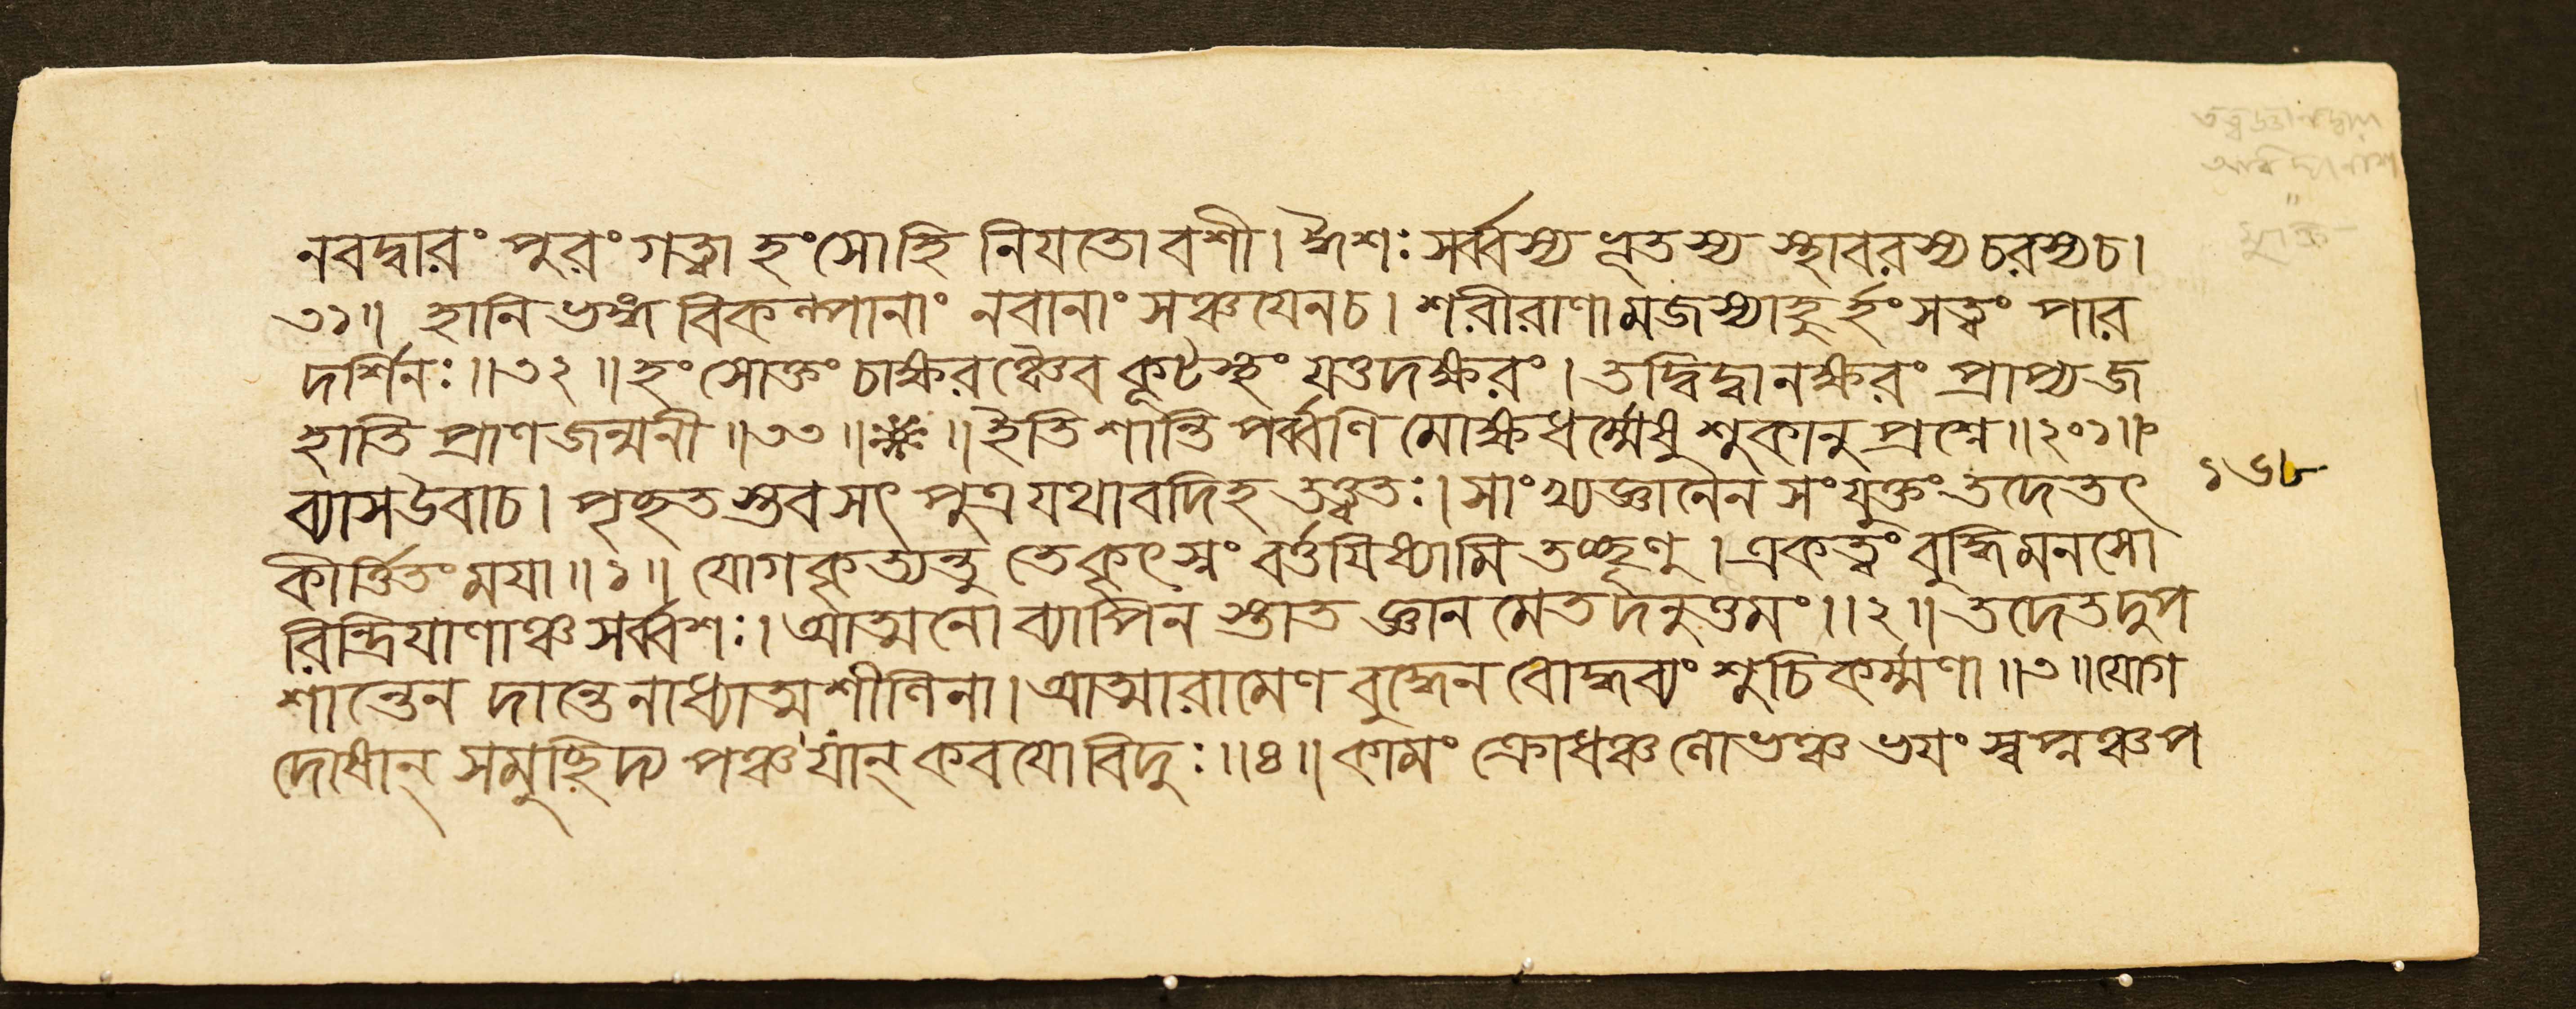 নবদ্বারং পুরং গত্বা হংসোহি নিযতোবশী। ঈশঃ সর্ব্বস্য ভূতস্য স্থাবরস্য চরস্যচ।
৩১॥ হানিভঙ্গ বিকল্পানাং নবানাং সঞ্চযেনচ। শরীরাণামজস্যাহুর্হংসত্বং পার
দর্শিনঃ॥৩২॥ হংসোক্তং চাক্ষরঞ্চৈব কূটস্থং যত্তদক্ষরং। তদ্বিদ্বানক্ষরং প্রাপ্যজ
হাতি প্রাণজন্মনী॥৩৩॥ ॥ইতি শান্তি পর্ব্বণি মোক্ষধর্ম্মেষু শুকানু প্রশ্নে॥২০১॥
ব্যাসউবাচ। পৃচ্ছতস্তবসৎ পুত্রযথাবদিহ তত্ত্বতঃ। সাংখ্যজ্ঞানেন সংযুক্তং তদেতৎ
কীর্ত্তিতং মযা॥১॥ যোগকৃত্যন্তু তেকৃৎস্নং বর্ত্তযিষ্যামি তচ্ছৃণু। একত্বং বুদ্ধিমনসো
রিন্দ্রিযাণাঞ্চ সর্ব্বশঃ। আত্মনো ব্যাপিন স্তাত জ্ঞান মেতদনুত্তমং।।২॥ তদেতদুপ
শান্তেন দান্তেনাধ্যাত্মশীলিনা। আত্মারামেণ বুদ্ধেন বোদ্ধব্যং শুচিকর্ম্মণা॥৩॥যোগ
দোষান্ সমুচ্ছিদ্য পঞ্চ যান্ কবযোবিদুঃ॥৪॥ কামং ক্রোধঞ্চ লোভঞ্চ ভযং স্বপ্নঞ্চপ
১৬৮